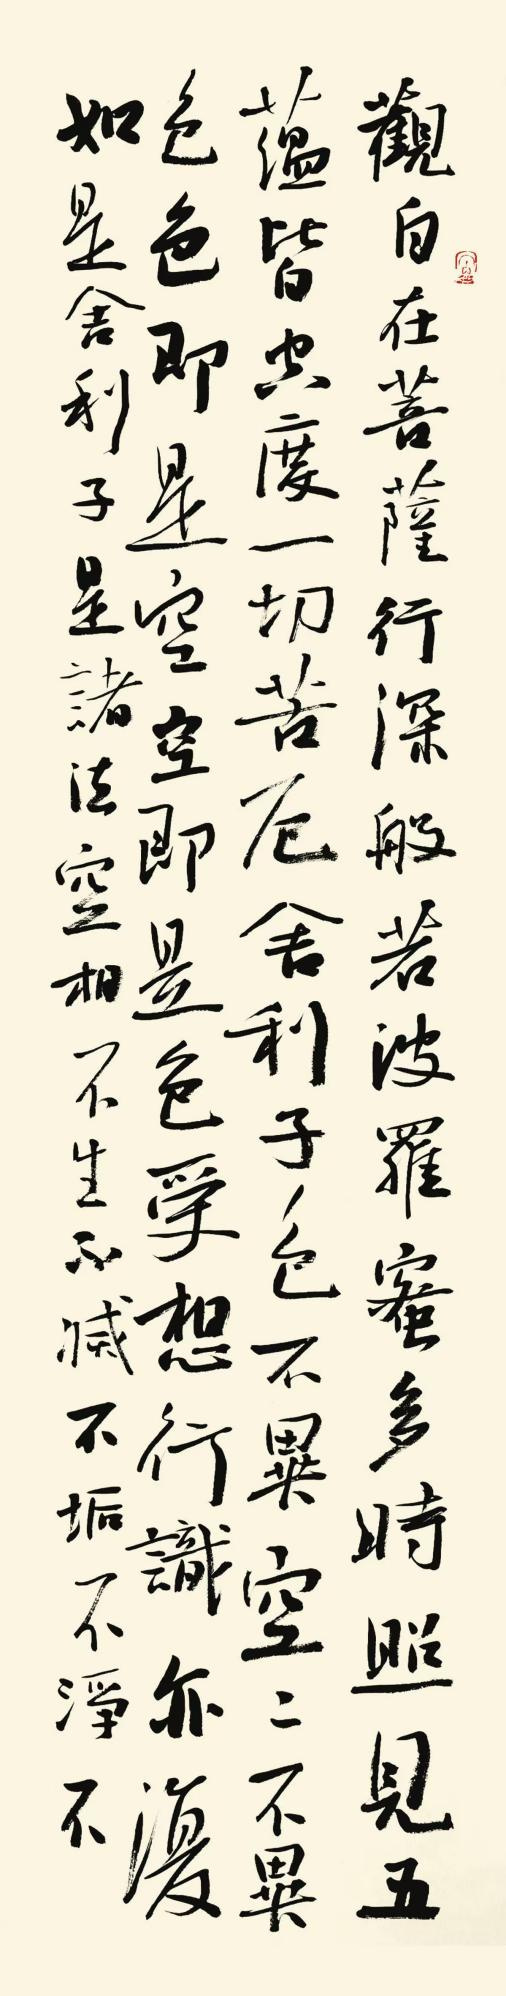 觀自在菩薩行深般若波羅蜜多時照見五
蘊皆空度一切苦厄舍利子色不異空二不異
色色即是空空即是色受想行識亦復
如是舍利子是諸法空相不生不滅不垢不淨不